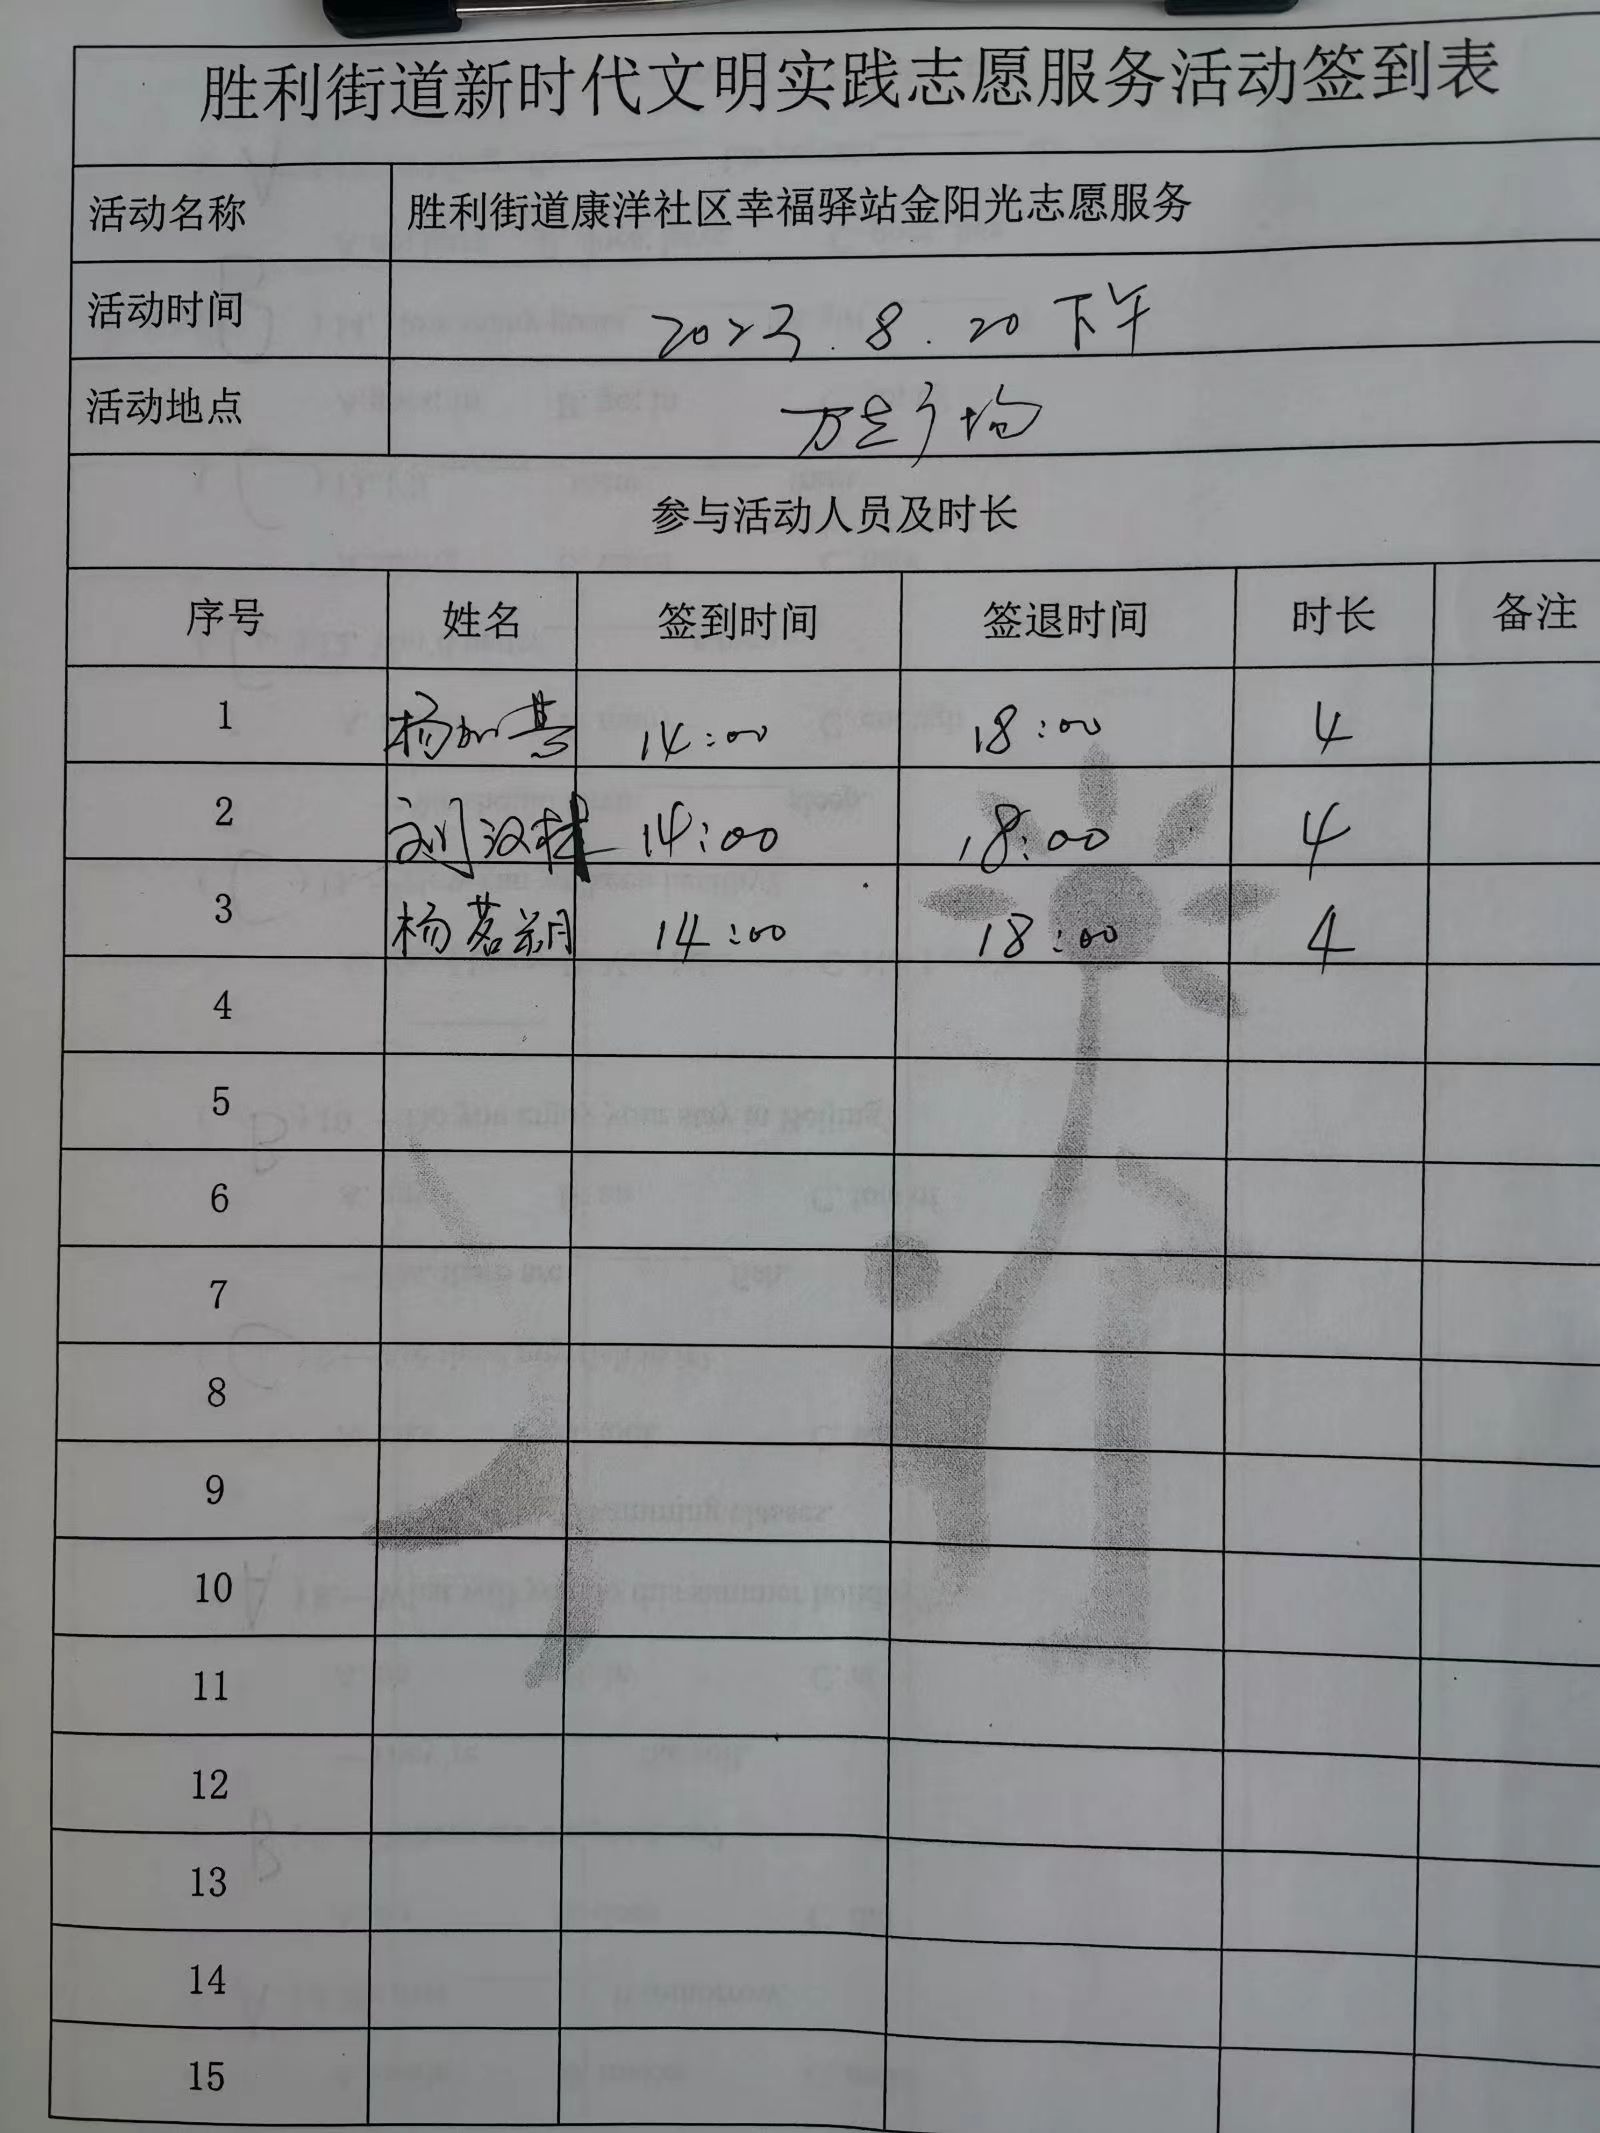 胜利街道新时代文明实践志愿服务活动签到表
活动名称 胜利街道康洋社区幸福驿站金阳光志愿服务
活动时间 2023.8.20下午
活动地点 万达广场
参与活动人员及时长
序号 姓名 签到时间 签退时间 时长 备注
1 杨 14:00 18:00 4
2 刘汉 14:00 18:00 4
3 杨茗 14:00 18:00 4
4
5
6
7
8
9
10
11
12
13
14
15